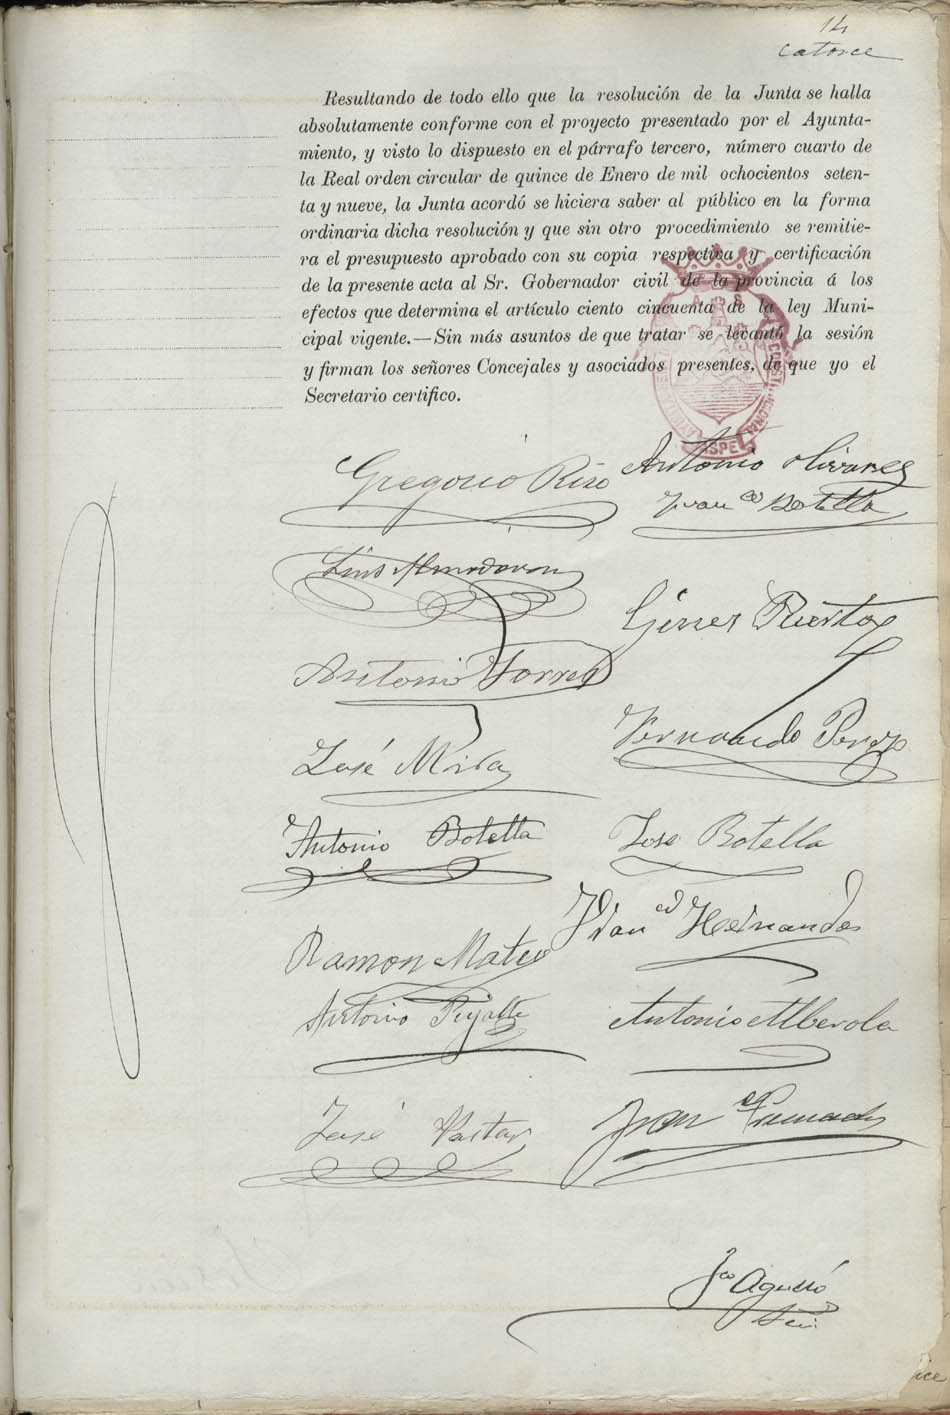 14
catorce
Resultando de todo ello que la resolución de la Junta se halla
absolutamente conforme con el proyecto presentado por el Ayunta-
miento, y visto lo dispuesto en el párrafo tercero, número cuarto de
la Real orden circular de quince de Enero de mil ochocientos seten-
ta y nueve, la Junta acordó se hiciera saber al público en la forma
ordinaria dicha resolución y que sin otro procedimiento se remitie-
ra el presupuesto aprobado con su copia respectiva y certificación
de la presente acta al Sr. Gobernador civil de la provincia á los
efectos que determina el artículo ciento cincuenta de la ley Muni-
cipal vigente.—Sin más asuntos de que tratar se levantó la sesión
y firman los señores Concejales y asociados presentes, de que yo el
Secretario certifico.
Gregorio Rizo
Antonio Olivares
Franco Botella
Luis Almodovar
Gines Puerto
Antonio Torres
Fernando Perez
José Mira
Antonio Botella
Jose Botella
Franco Hernandez
Ramon Mateo
Antonio
Antonio Alberola
José Pastor
Fran
Fco Agulló